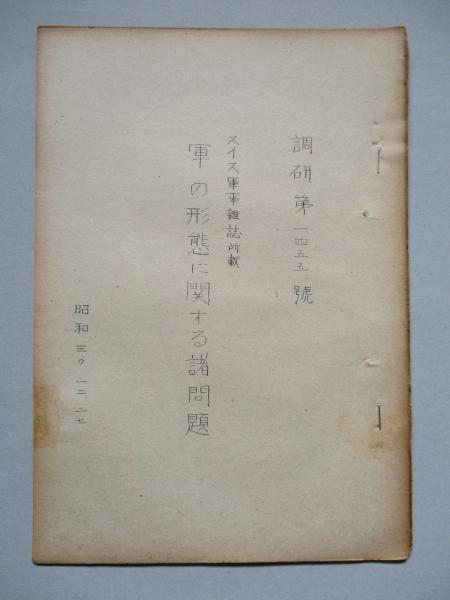 調研第一四五五號
スイス軍事雑誌所載
軍の形態に関する諸問題
昭和三〇、一二、二七